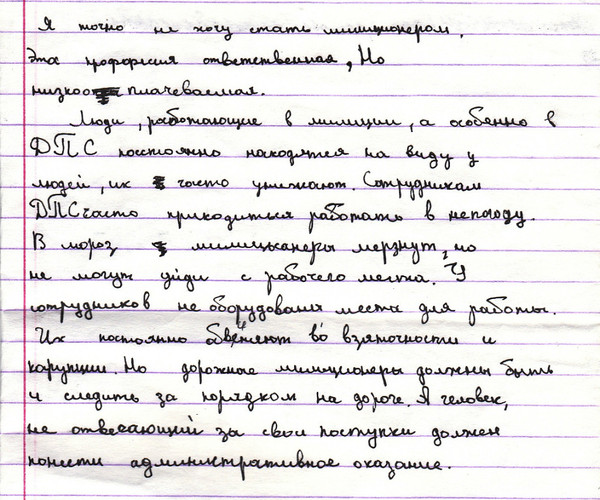 Я точно не хочу стать милиционером.
Эта профория ответственная, Но
низкооплачеваемая.
Люди, работающие в милиции, а особенно в
ДПС посстоянно находятся на виду у
людей, их часто унижают. Сотрудникам
ДПС часто приходиться работать в непогоду.
В мороз милицыанеры мерзнут, но
не могут уйди с рабочего места. У
сотрудников не оборудования места для работы.
Их постоянно обвеняют во взяточности и
карупции. Но дорожные милиционеры должны быть
и следить за порядком на дороге. А человек,
не отвечающий за свои поступки должен
понести административное оказание.